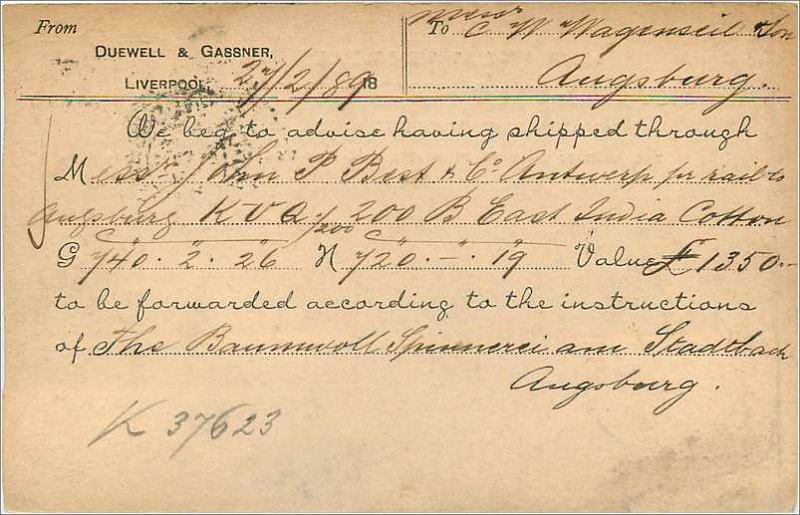 From
DUEWELL & GASSNER,
LIVERPOOL 27/2/89 18
To Messrs C W Wagenseil & Son
Augsburg.
We beg to advise having shipped through
Messrs John P. Best & Co Antwerp pr rail to
Augsburg K V A 1/200 200 B East India Cotton
G 740. 2. 26 N 720. -. 19 Value £1350.-
to be forwarded according to the instructions
of The Baumwoll Spinnerei am Stadtbach
Augsburg.
K 37623